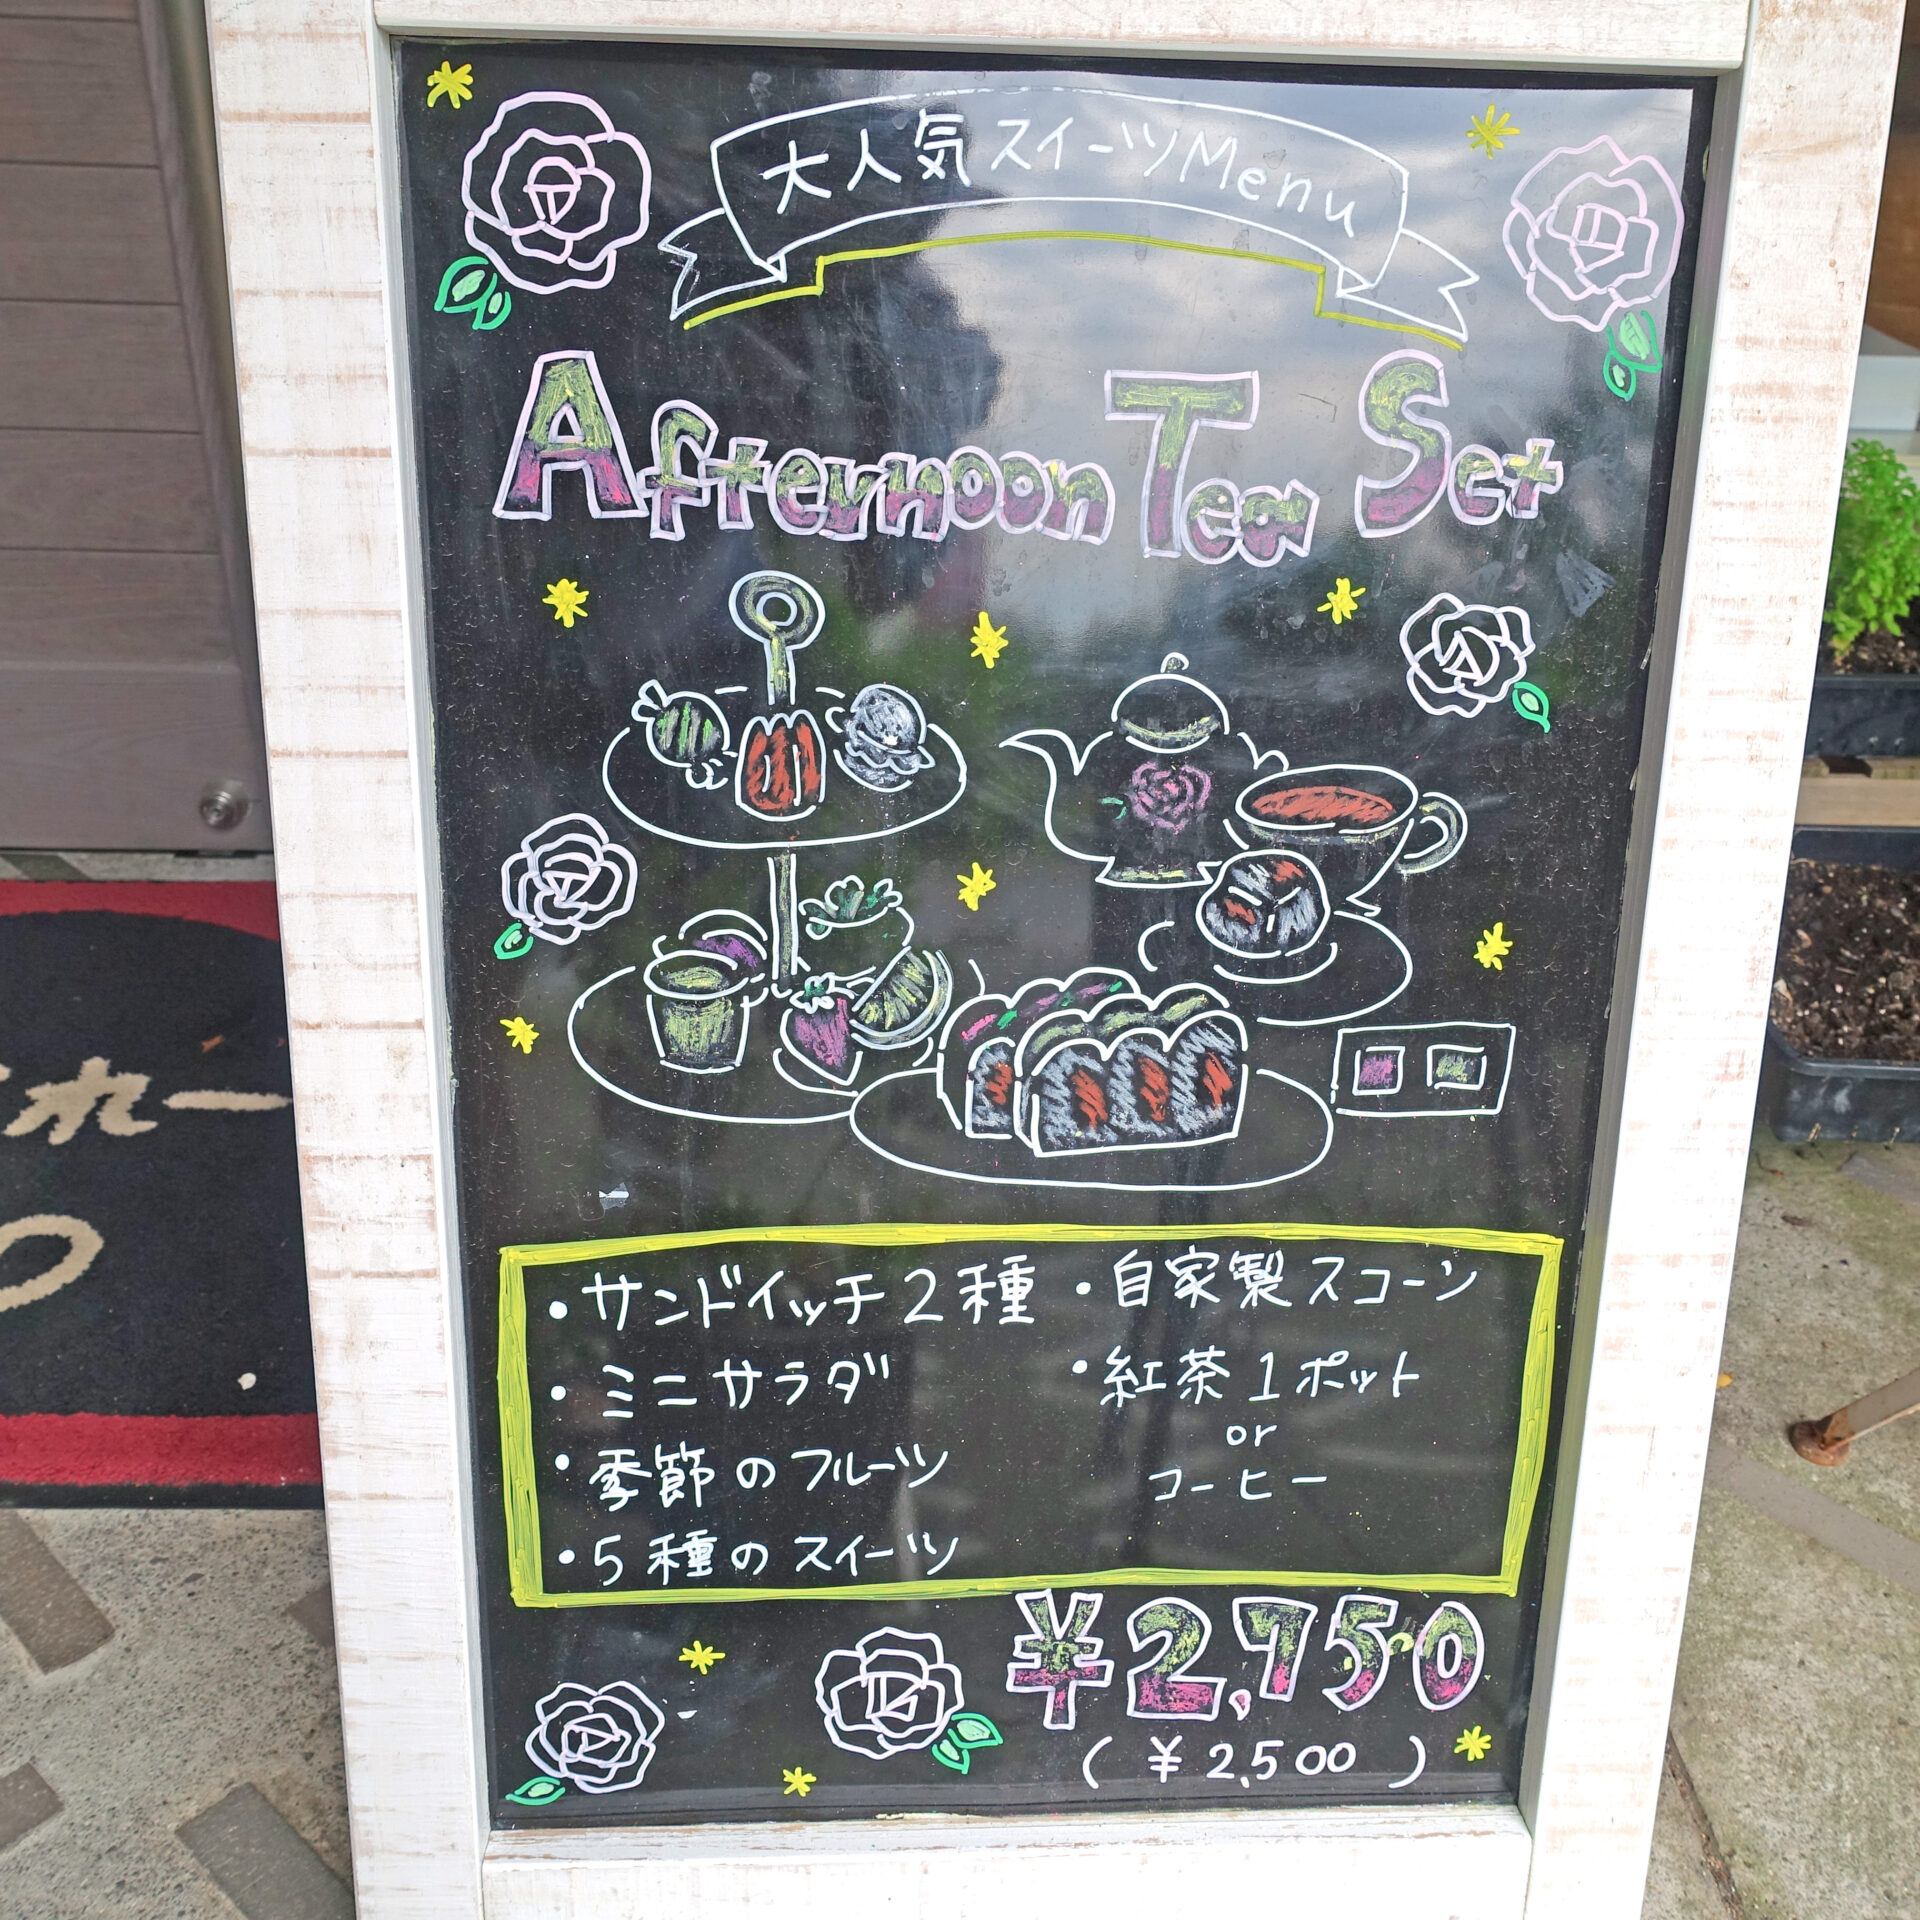 大人気スイーツMenu
Afternoon Tea Set
・サンドイッチ2種
・ミニサラダ
・季節のフルーツ
・5種のスイーツ
・自家製スコーン
・紅茶1ポット
or
コーヒー
¥2,750
(¥2,500)